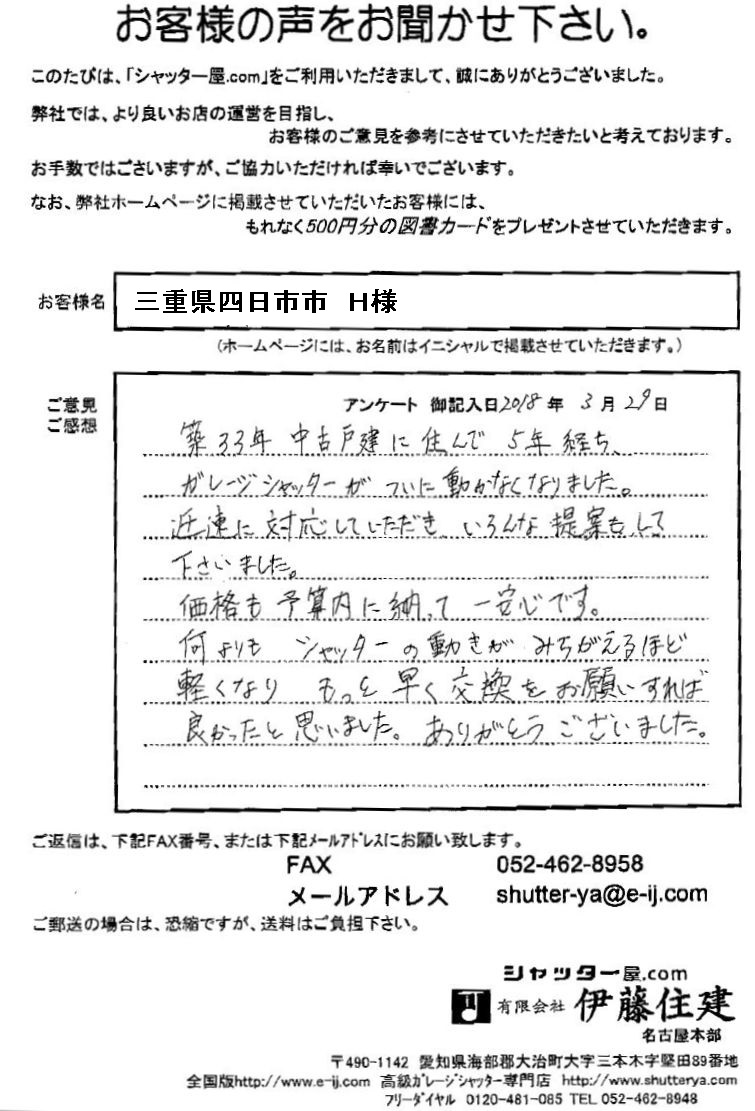 お客様の声をお聞かせ下さい。
このたびは、「シャッター屋.com」をご利用いただきまして、誠にありがとうございました。
弊社では、より良いお店の運営を目指し、
お客様のご意見を参考にさせていただきたいと考えております。
お手数ではごさいますが、ご協力いただければ幸いでございます。
なお、弊社ホームページに掲載させていただいたお客様には、
もれなく500円分の図書カードをプレゼントさせていただきます。
お客様名 三重県四日市市 H様
(ホームページには、お名前はイニシャルで掲載させていただきます。)
ご意見
ご感想
アンケート 御記入日2018年 3月29日
築33年 中古戸建に住んで 5年経ち、
ガレージシャッターが ついに動かなくなりました。
迅速に対応していただき いろんな提案もして
下さいました。
価格も予算内に納って 一安心です。
何よりも シャッターの動きが みちがえるほど
軽くなり もっと早く交換をお願いすれば
良かったと思いました。ありがとうございました。
ご返信は、下記FAX番号、または下記メールアドレスにお願い致します。
FAX 052-462-8958
メールアドレス shutter-ya@e-ij.com
ご郵送の場合は、恐縮ですが、送料はご負担下さい。
シャッター屋.com
有限会社 伊藤住建
名古屋本部
〒490-1142 愛知県海部郡大治町大字三本木字堅田89番地
全国版http://www.e-ij.com 高級ガレージシャッター専門店 http://www.shutterya.com
フリーダイヤル 0120-481-085 TEL 052-462-8948